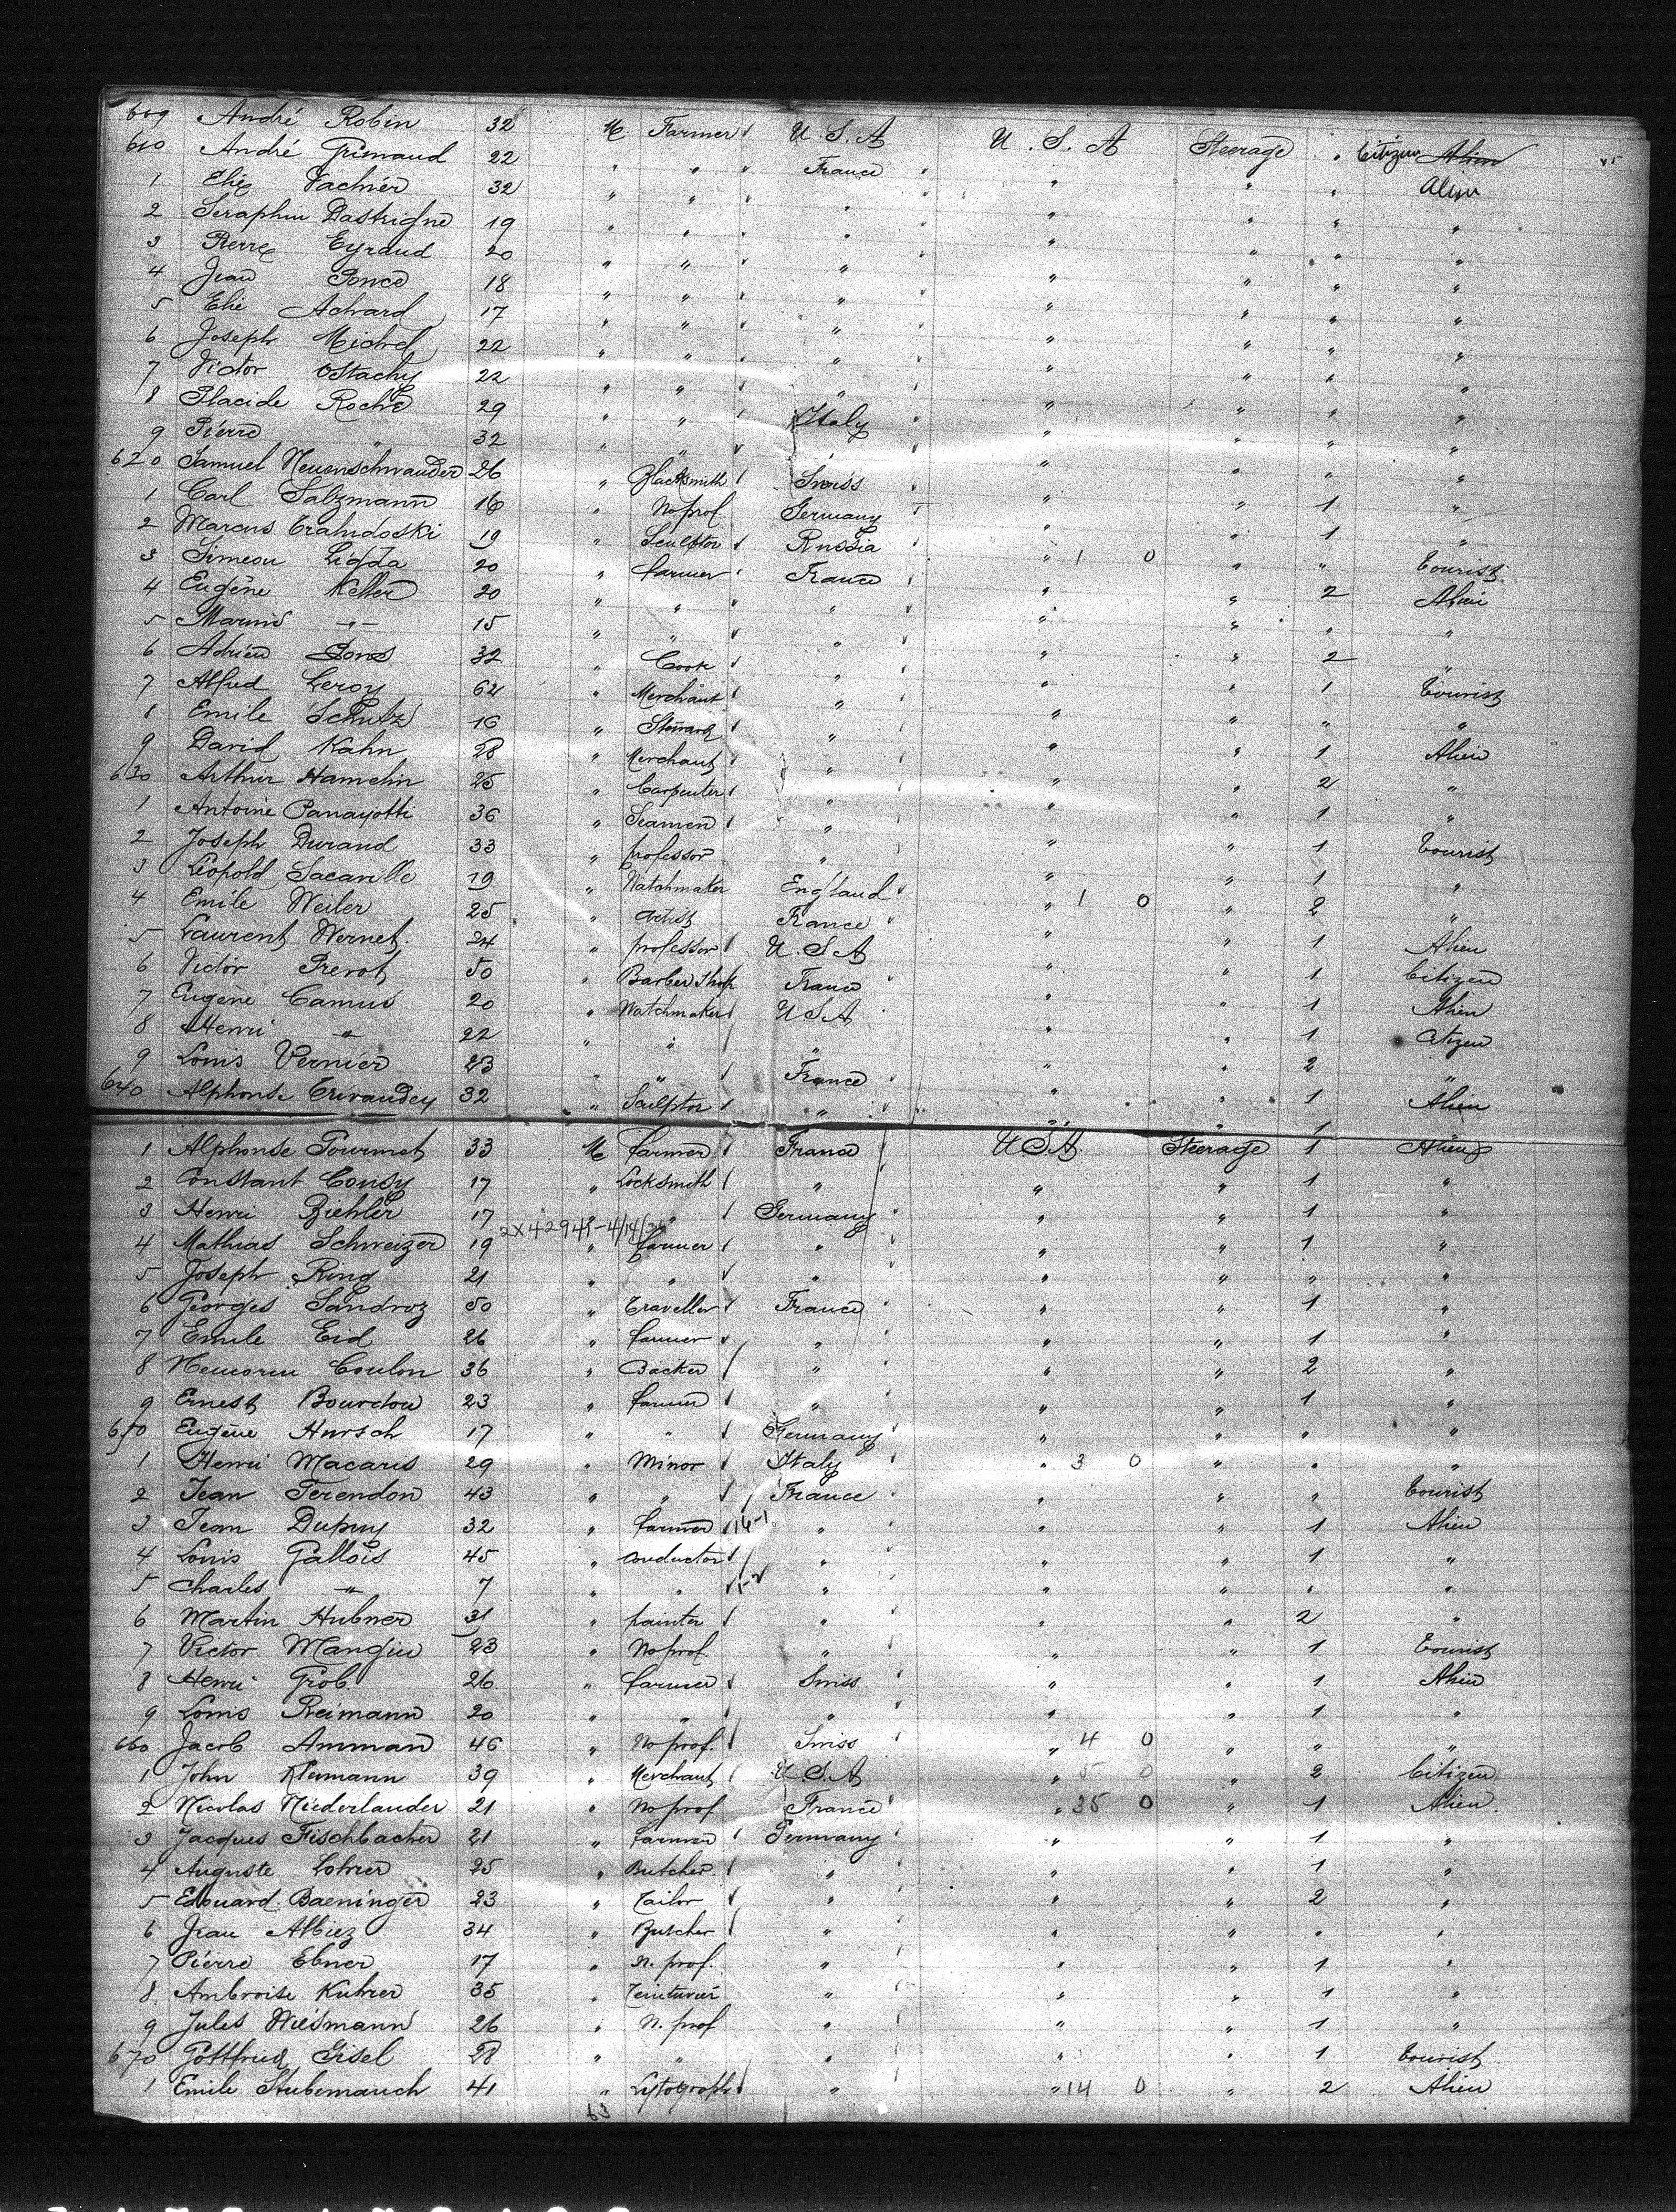 609 André Robin 32 M Farmer U.S.A U.S.A Steerage " Citizen Alien
610 André Grimaud 22 " " France " " " Alien
1 Elie Vachier 32 " " " " " " "
2 Seraphin Dastrigne 19 " " " " " " "
3 Pierre Eyraud 20 " " " " " " "
4 Jean Ponce 18 " " " " " " "
5 Elie Achard 17 " " " " " " "
6 Joseph Michel 22 " " " " " " "
7 Victor Ostachy 22 " " " " " " "
8 Placide Roche 29 " " Italy " " " "
9 Pierre " 32 " " " " " " "
620 Samuel Neuenschwander 26 " Blacksmith Swiss " " " "
1 Carl Salzmann 16 " No prof Germany " " 1 "
2 Marcus 19 " Sculptor Russia " " 1 "
3 Simeon Ligda 20 " farmer France " 1 0 " " Tourist
4 Eugène Keller 20 " " " " " 2 Alien
5 Marius -"- 15 " " " " " " "
6 Adrien Pons 32 " Cook " " " 2 "
7 Alfred Leroy 62 " Merchant " " " 1 Tourist
8 Emile Schutz 16 " Steward " " " " "
9 David Kahn 28 " Merchant " " " 1 Alien
630 Arthur Hamelin 25 " Carpenter " " " 2 "
1 Antoine Panayotti 36 " Seamen " " " 1 "
2 Joseph Durand 33 " professor " " " 1 Tourist
3 Léopold Sacaville 19 " Watchmaker England " " 1 "
4 Emile Weiler 25 " Artist France " 1 0 " 2 "
5 Laurent Wernet 24 " professor U.S.A " " 1 Alien
6 Victor Prevot 50 " Barber shop France " " 1 Citizen
7 Eugène Camus 20 " Watchmaker U.S.A " " 1 Alien
8 Henri -"- 22 " " " " " 1 Citizen
9 Louis Vernier 23 " " France " " 2 "
640 Alphonse Trivaudey 32 " Sculptor " " " 1 Alien
1 Alphonse Tournot 33 M farmer France U.S.A. Steerage 1 Alien
2 Constant 17 " Locksmith " " " 1 "
3 Henri Ziehler 17 " " Germany " " 1 "
4 Mathias Schweizer 19 " farmer " " " 1 "
5 Joseph Ring 21 " " " " " " "
6 Georges Sandroz 50 " Traveller France " " 1 "
7 Emile Eid 26 " farmer " " " 1 "
8 Coulon 36 " Backer " " " 2 "
9 Ernest Bourdon 23 " farmer " " " 1 "
650 Eugène Hursch 17 " " Germany " " " "
1 Henri Macaris 29 " Minor Italy " 3 0 " " "
2 Jean Terendon 43 " " France " " " Tourist
3 Jean Dupuy 32 " farmer 16-1 " " " 1 Alien
4 Louis Gallois 45 " conductor " " " 1 "
5 Charles -"- 7 " " " " " " "
6 Martin Hubner 31 " painter " " " 2 "
7 Victor Mangin 23 " No prof. " " " 1 Tourist
8 Henri Grob 26 " farmer Swiss " " 1 Alien
9 Louis Reimann 20 " " " " " 1 "
660 Jacob Amman 46 " No prof. Swiss " 4 0 " " "
1 John Klemann 39 " Merchant U.S.A " 5 0 " 2 Citizen
2 Nicolas Niederlander 21 " No prof France " 35 0 " 1 Alien
3 Jacques Fischbacher 21 " farmer Germany " " 1 "
4 Auguste Lohrer 25 " Butcher " " " 1 "
5 Edouard Baeninger 23 " Tailor " " " 2 "
6 Jean Albiez 34 " Butcher " " " " "
7 Pierre Ebner 17 " N. prof. " " " 1 "
8 Ambroise Kuhrer 35 " Teinturier " " " 1 "
9 Jules Wiesmann 26 " N. prof " " " 1 "
670 Gottfried Gisel 28 " " " " " 1 Tourist
1 Emile Stubemauch 41 " Lytograph " " 14 0 " 2 Alien
63